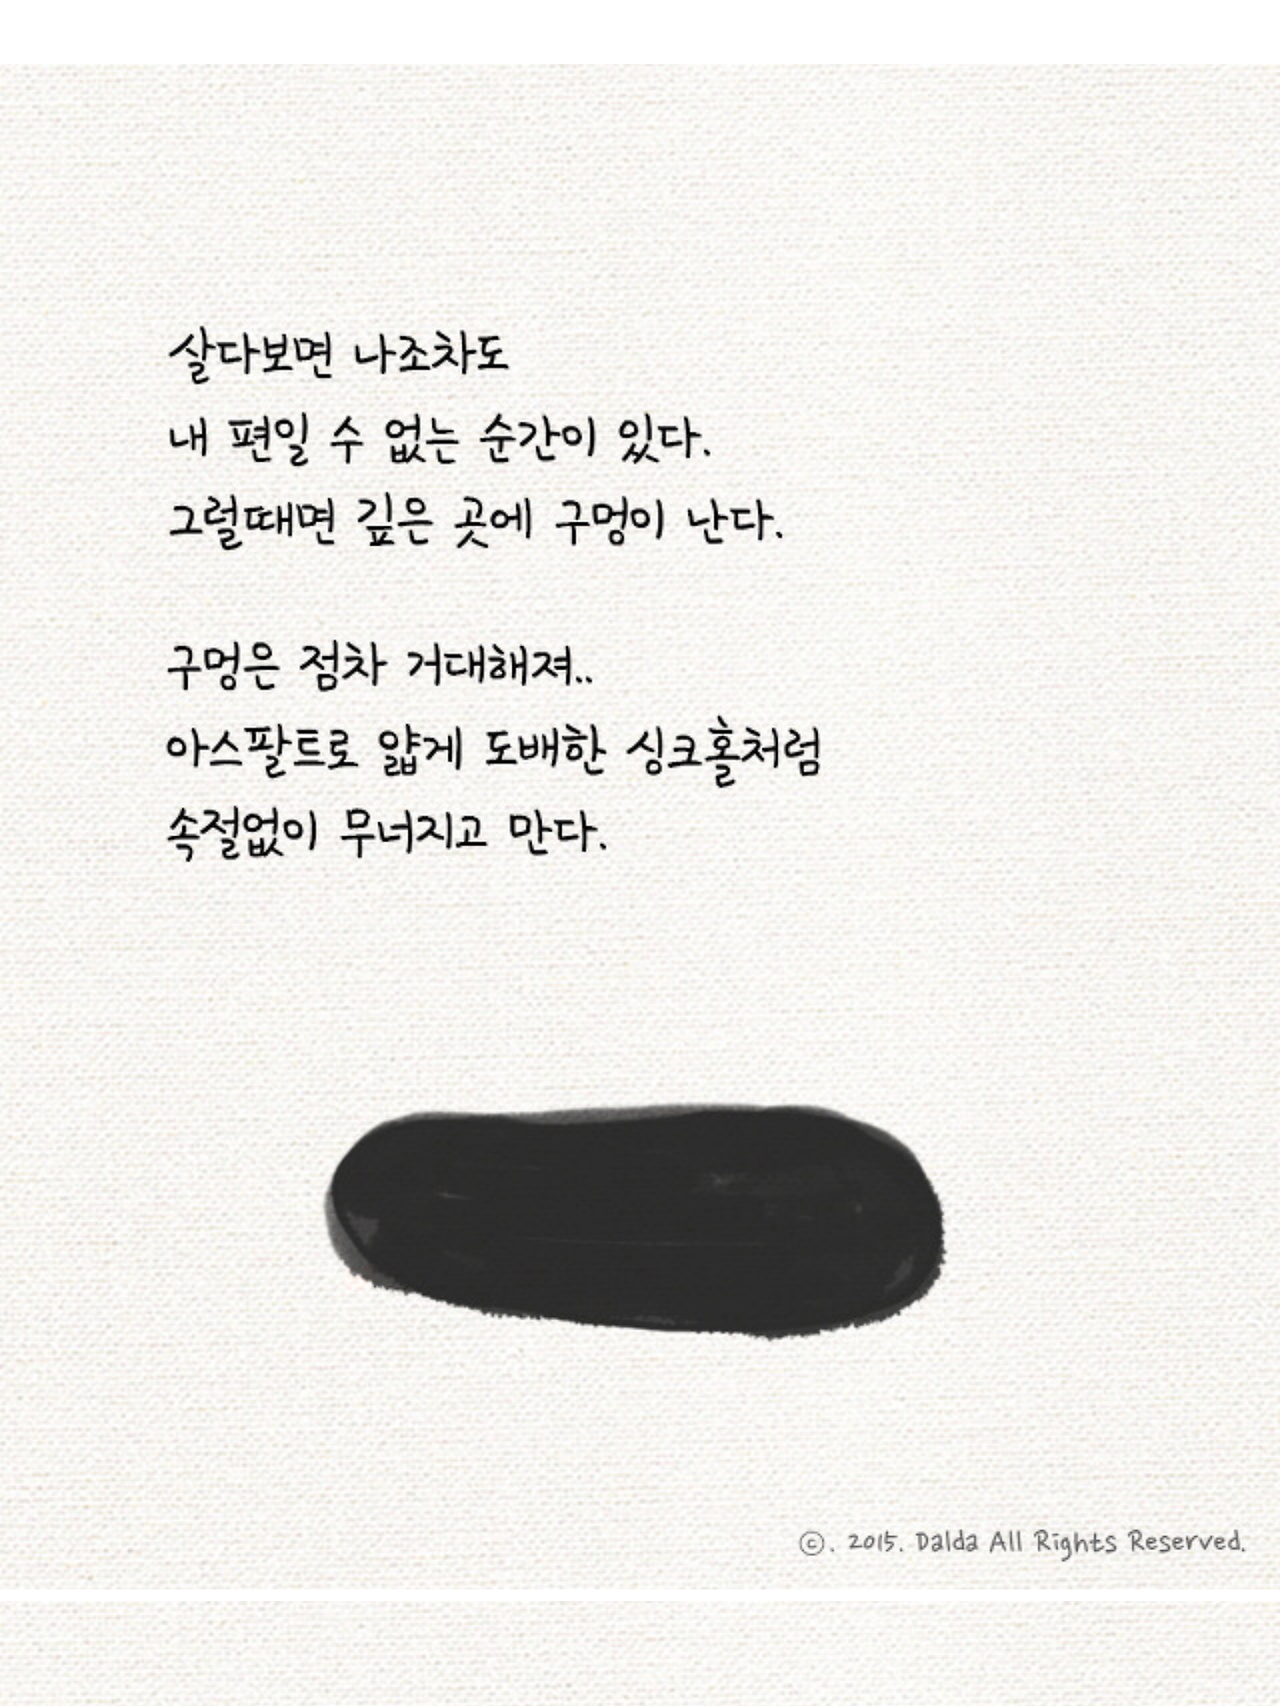 살다보면 나조차도
내 편일 수 없는 순간이 있다.
그럴때면 깊은 곳에 구멍이 난다.
구멍은 점차 거대해져..
아스팔트로 얇게 도배한 싱크홀처럼
속절없이 무너지고 만다.
©. 2015. Dalda All Rights Reserved.